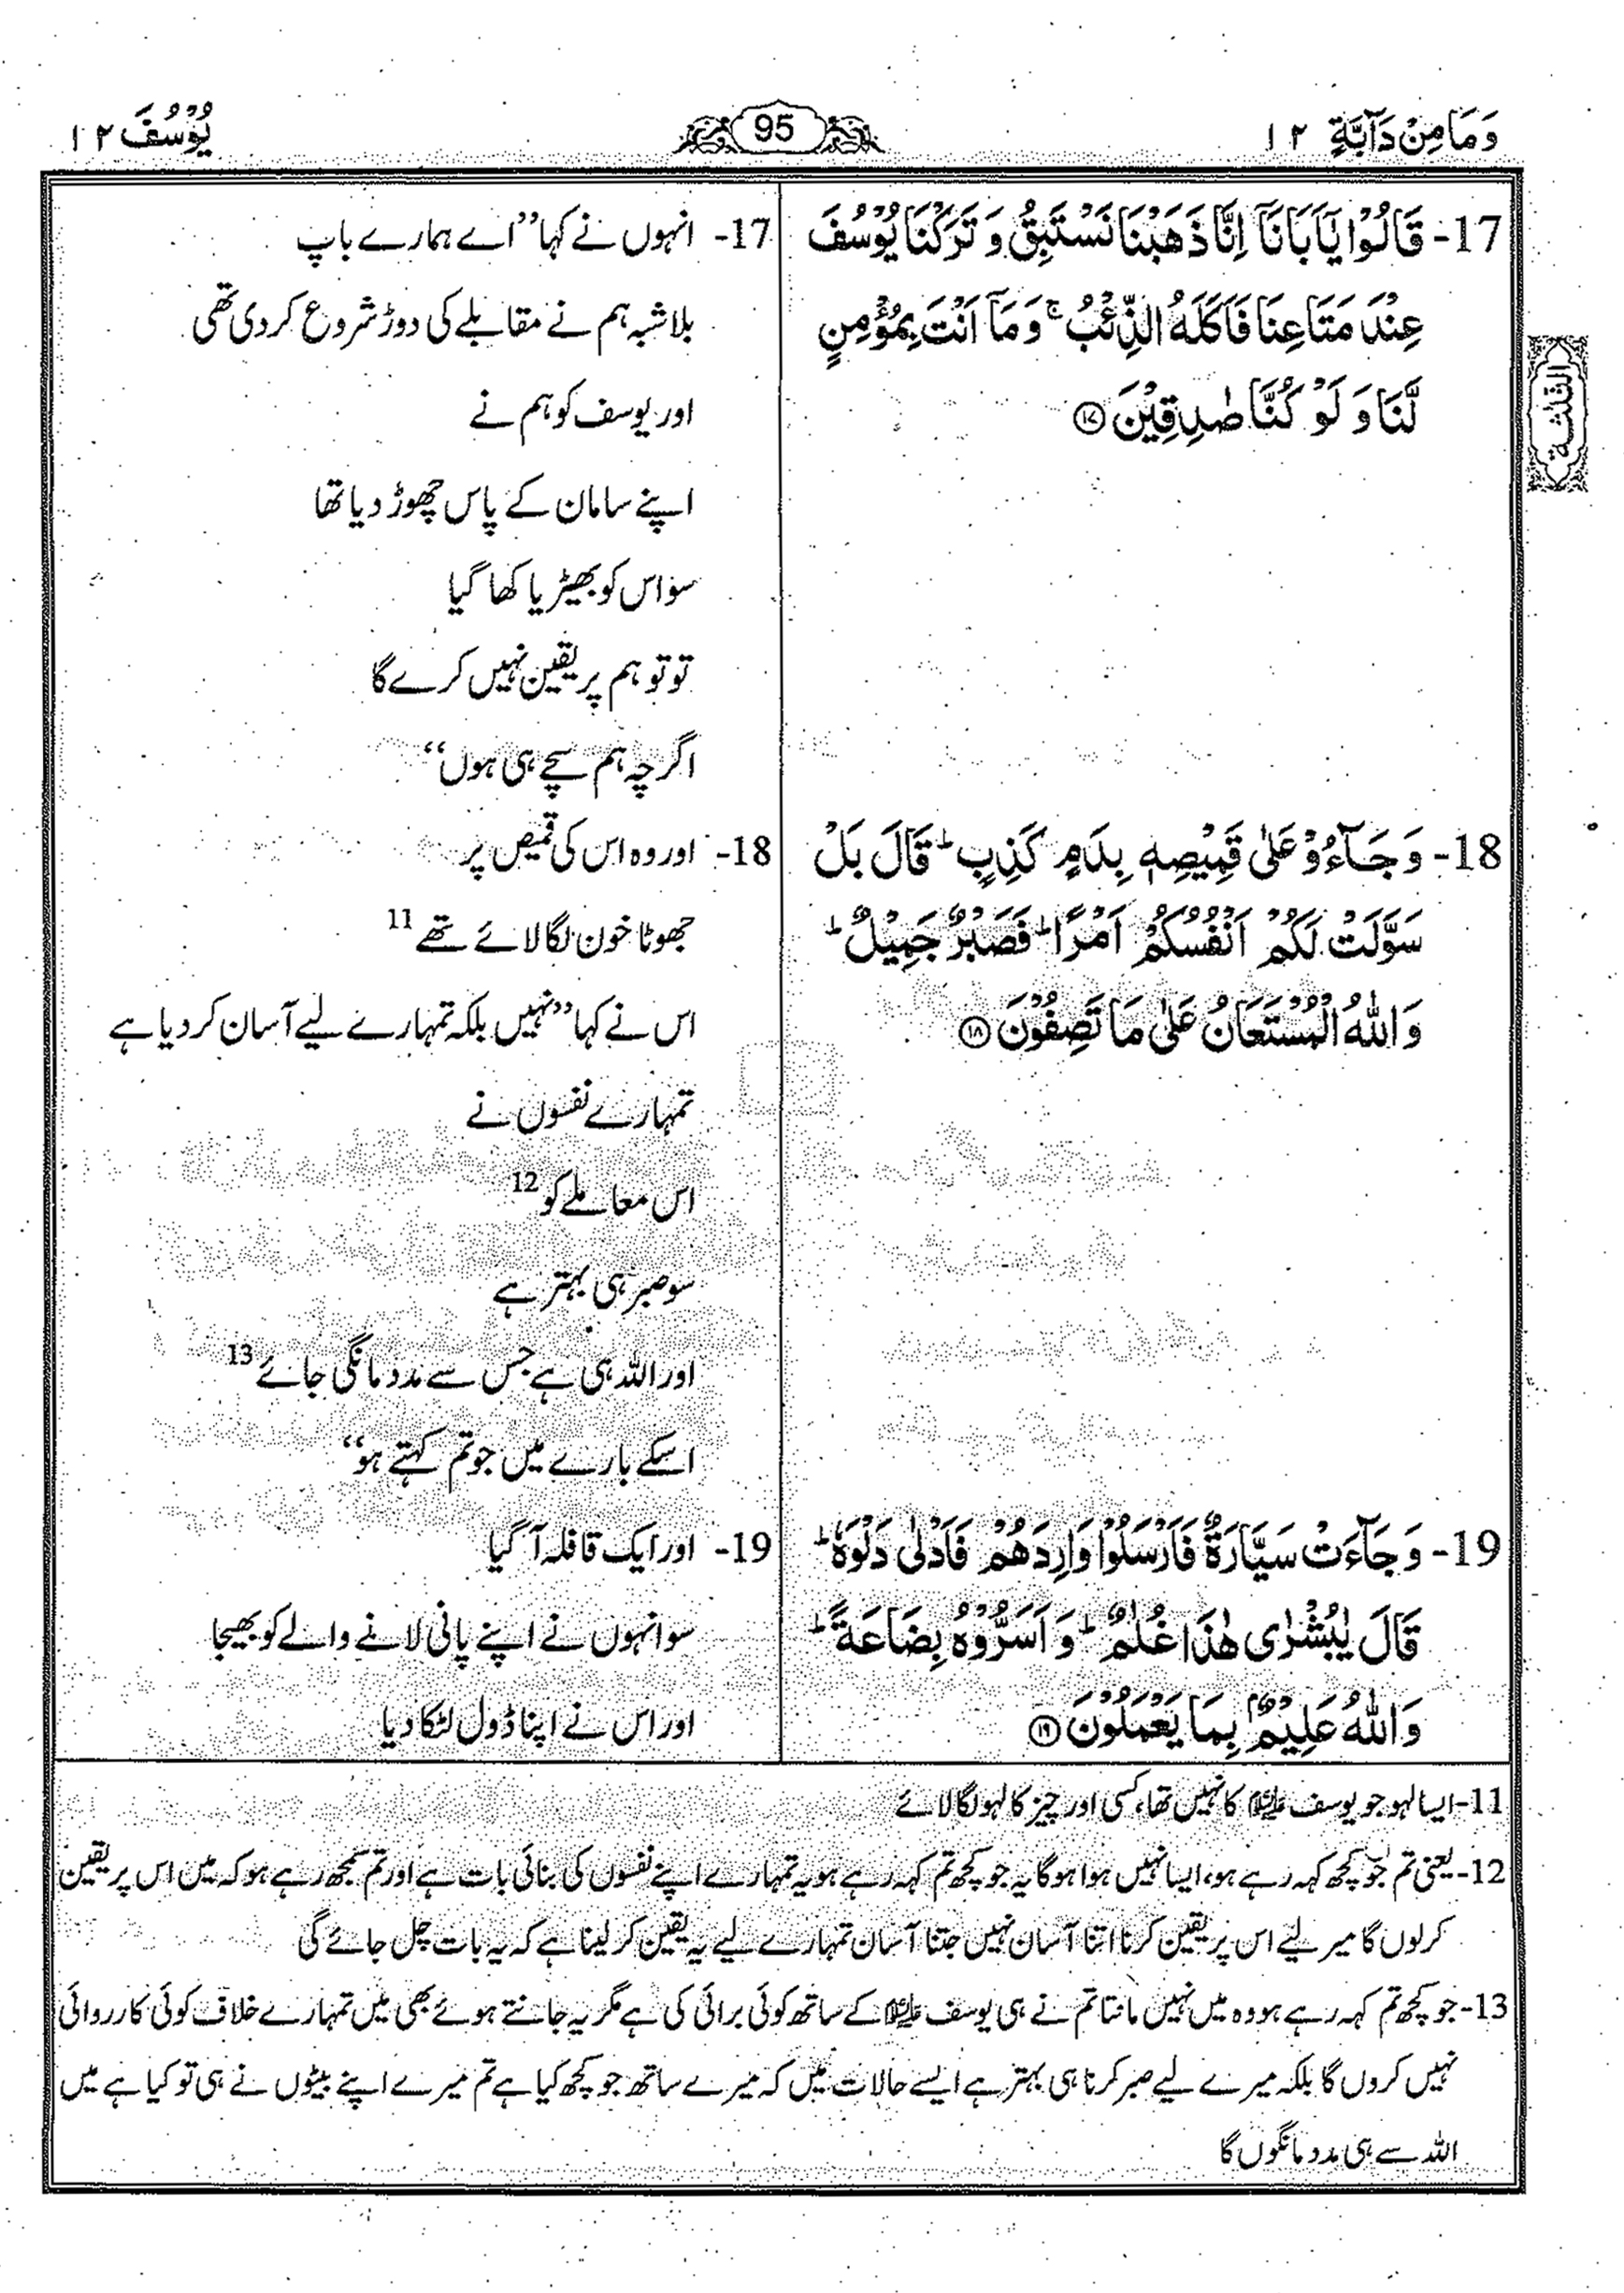 وَمَا مِنْ دَآبَّةٍ ۱۲
95
يُوْسُفَ ۱۲
17- قَالُوْا يٰۤاَبَانَاۤ اِنَّا ذَهَبْنَا نَسْتَبِقُ وَ تَرَكْنَا يُوْسُفَ
عِنْدَ مَتَاعِنَا فَاَكَلَهُ الذِّئْبُ ۚ وَ مَاۤ اَنْتَ بِمُؤْمِنٍ
لَّنَا وَ لَوْ كُنَّا صٰدِقِيْنَ ۝۱۷
الثلثة
17- انہوں نے کہا ”اے ہمارے باپ
بلاشبہ ہم نے مقابلے کی دوڑ شروع کر دی تھی
اور یوسف کو ہم نے
اپنے سامان کے پاس چھوڑ دیا تھا
سو اس کو بھیڑیا کھا گیا
تو تو ہم پر یقین نہیں کرے گا
اگرچہ ہم سچے ہی ہوں“
18- وَ جَآءُوْ عَلٰى قَمِيْصِهٖ بِدَمٍ كَذِبٍ ؕ قَالَ بَلْ
سَوَّلَتْ لَكُمْ اَنْفُسُكُمْ اَمْرًا ؕ فَصَبْرٌ جَمِيْلٌ ؕ
وَ اللّٰهُ الْمُسْتَعَانُ عَلٰى مَا تَصِفُوْنَ ۝۱۸
18- اور وہ اس کی قمیص پر
جھوٹا خون لگا لائے تھے 11
اس نے کہا ”نہیں بلکہ تمہارے لیے آسان کر دیا ہے
تمہارے نفسوں نے
اس معاملے کو 12
سو صبر ہی بہتر ہے
اور اللہ ہی ہے جس سے مدد مانگی جائے 13
اسکے بارے میں جو تم کہتے ہو“
19- وَ جَآءَتْ سَيَّارَةٌ فَاَرْسَلُوْا وَارِدَهُمْ فَاَدْلٰى دَلْوَهٗ ؕ
قَالَ يٰبُشْرٰى هٰذَا غُلٰمٌ ؕ وَ اَسَرُّوْهُ بِضَاعَةً ؕ
وَ اللّٰهُ عَلِيْمٌۢ بِمَا يَعْمَلُوْنَ ۝۱۹
19- اور ایک قافلہ آ گیا
سو انہوں نے اپنے پانی لانے والے کو بھیجا
اور اس نے اپنا ڈول لٹکا دیا
11- ایسا لہو جو یوسف علیہ السلام کا نہیں تھا، کسی اور چیز کا لہو لگا لائے
12- یعنی تم جو کچھ کہہ رہے ہو، ایسا نہیں ہوا ہو گا یہ جو کچھ تم کہہ رہے ہو یہ تمہارے اپنے نفسوں کی بنائی بات ہے اور تم سمجھ رہے ہو کہ میں اس پر یقین
کر لوں گا میرے لیے اس پر یقین کرنا اتنا آسان نہیں جتنا آسان تمہارے لیے یہ یقین کر لینا ہے کہ یہ بات چل جائے گی
13- جو کچھ تم کہہ رہے ہو وہ میں نہیں مانتا تم نے ہی یوسف علیہ السلام کے ساتھ کوئی برائی کی ہے مگر یہ جانتے ہوئے بھی میں تمہارے خلاف کوئی کارروائی
نہیں کروں گا بلکہ میرے لیے صبر کرنا ہی بہتر ہے ایسے حالات میں کہ میرے ساتھ جو کچھ کیا ہے تم میرے اپنے بیٹوں نے ہی تو کیا ہے میں
اللہ سے ہی مدد مانگوں گا